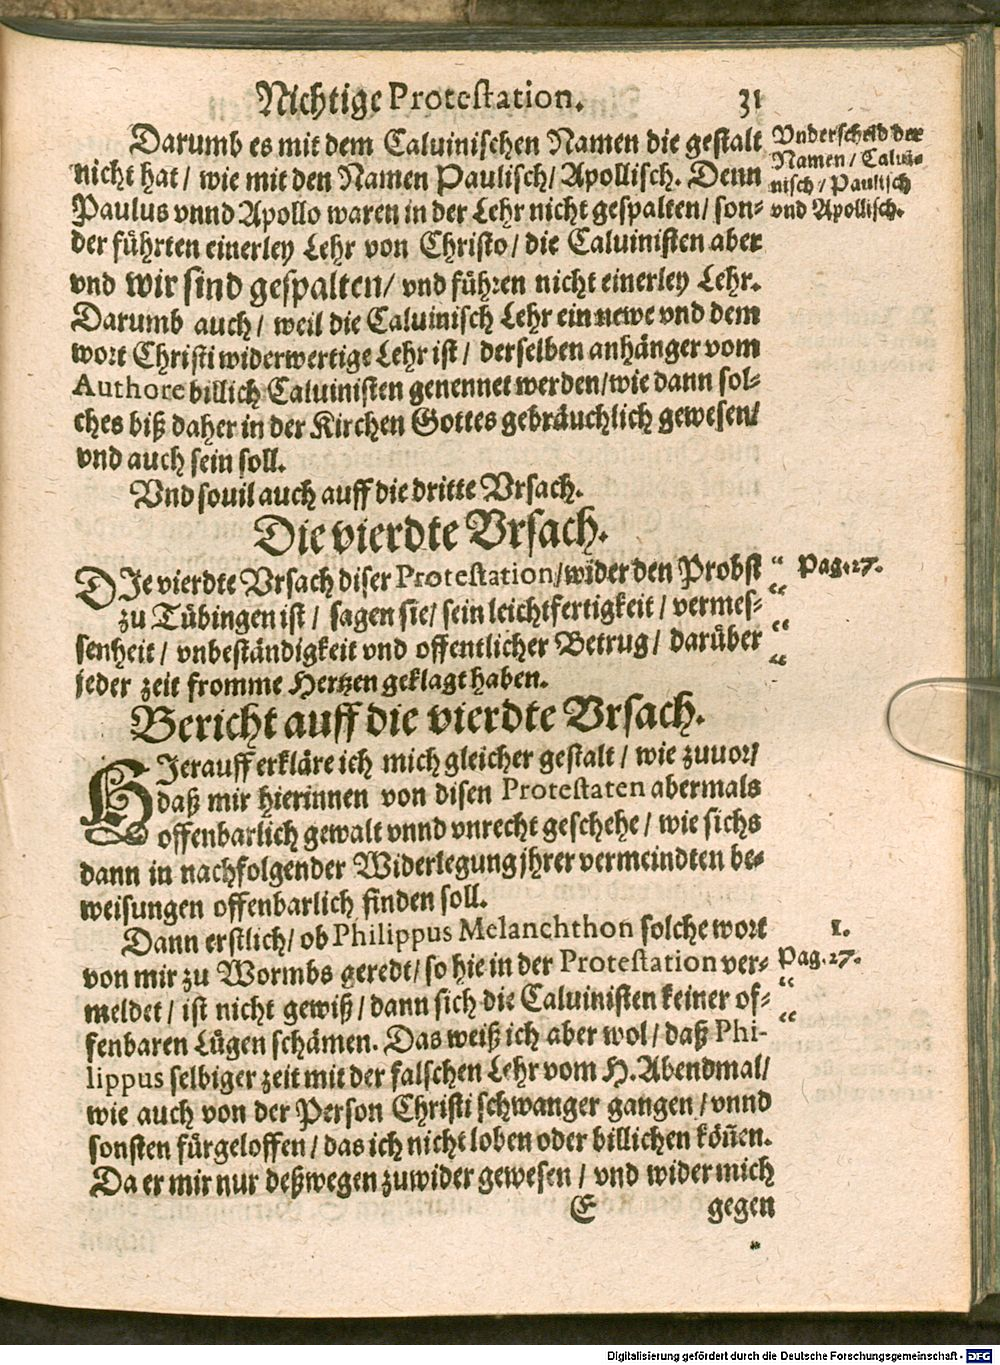 Nichtige Protestation. 31
Darumb es mit dem Caluinischen Namen die gestalt
nicht hat / wie mit den Namen Paulisch / Apollisch. Denn
Paulus vnnd Apollo waren in der Lehr nicht gespalten / son-
der führten einerley Lehr von Christo / die Caluinisten aber
vnd wir sind gespalten / vnd führen nicht einerley Lehr.
Darumb auch / weil die Caluinisch Lehr ein newe vnd dem
wort Christi widerwertige Lehr ist / derselben anhänger vom
Authore billich Caluinisten genennet werden / wie dann sol-
ches biß daher in der Kirchen Gottes gebräuchlich gewesen /
vnd auch sein soll.
Vnderscheid der
Namen / Calui-
nisch / Paulisch
vnd Apollisch.
Vnd souil auch auff die dritte Vrsach.
Die vierdte Vrsach.
DIe vierdte Vrsach diser Protestation / wider den Probst
zu Tübingen ist / sagen sie / sein leichtfertigkeit / vermes-
senheit / vnbeständigkeit vnd offentlicher Betrug / darüber
jeder zeit fromme Hertzen geklagt haben.
" Pag. 27.
"
"
"
Bericht auff die vierdte Vrsach.
HIerauff erkläre ich mich gleicher gestalt / wie zuuor /
daß mir hierinnen von disen Protestaten abermals
offenbarlich gewalt vnnd vnrecht geschehe / wie sichs
dann in nachfolgender Widerlegung jhrer vermeindten be-
weisungen offenbarlich finden soll.
Dann erstlich / ob Philippus Melanchthon solche wort
von mir zu Wormbs geredt / so hie in der Protestation ver-
meldet / ist nicht gewiß / dann sich die Caluinisten keiner of-
fenbaren Lügen schämen. Das weiß ich aber wol / daß Phi-
lippus selbiger zeit mit der falschen Lehr vom H. Abendmal /
wie auch von der Person Christi schwanger gangen / vnnd
sonsten fürgeloffen / das ich nicht loben oder billichen köñen.
Da er mir nur deßwegen zuwider gewesen / vnd wider mich
1.
Pag. 27.
"
"
E gegen
Digitalisierung gefördert durch die Deutsche Forschungsgemeinschaft - DFG